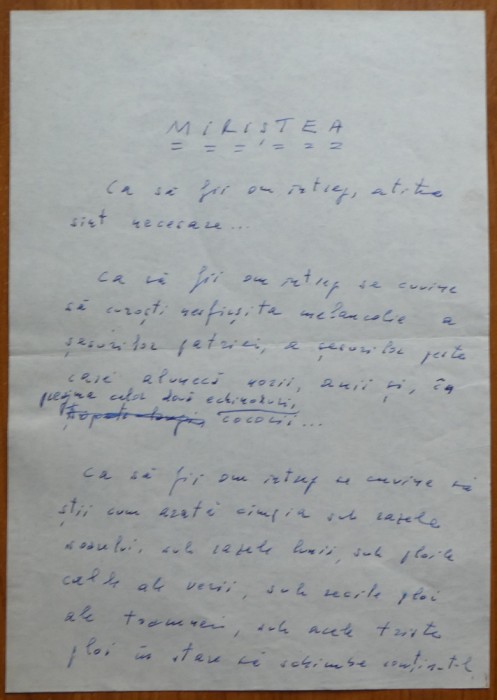 MIRIȘTEA
Ca să fii om întreg, atîtea
sînt necesare...
Ca să fii om întreg se cuvine
să cunoști nesfîrșita melancolie a
șesurilor patriei, a șesurilor peste
care alunecă norii, anii și, în
preajma celor două echinoxuri,
cocorii...
Ca să fii om întreg se cuvine să
știi cum arată cîmpia sub razele
soarelui, sub razele lunii, sub ploile
calde ale verii, sub recile ploi
ale toamnei, sub acele triste
ploi în stare să schimbe conținutul